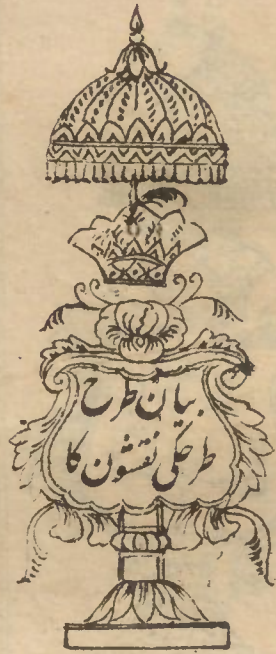 بیان طرح
طرحکی نقشون کا